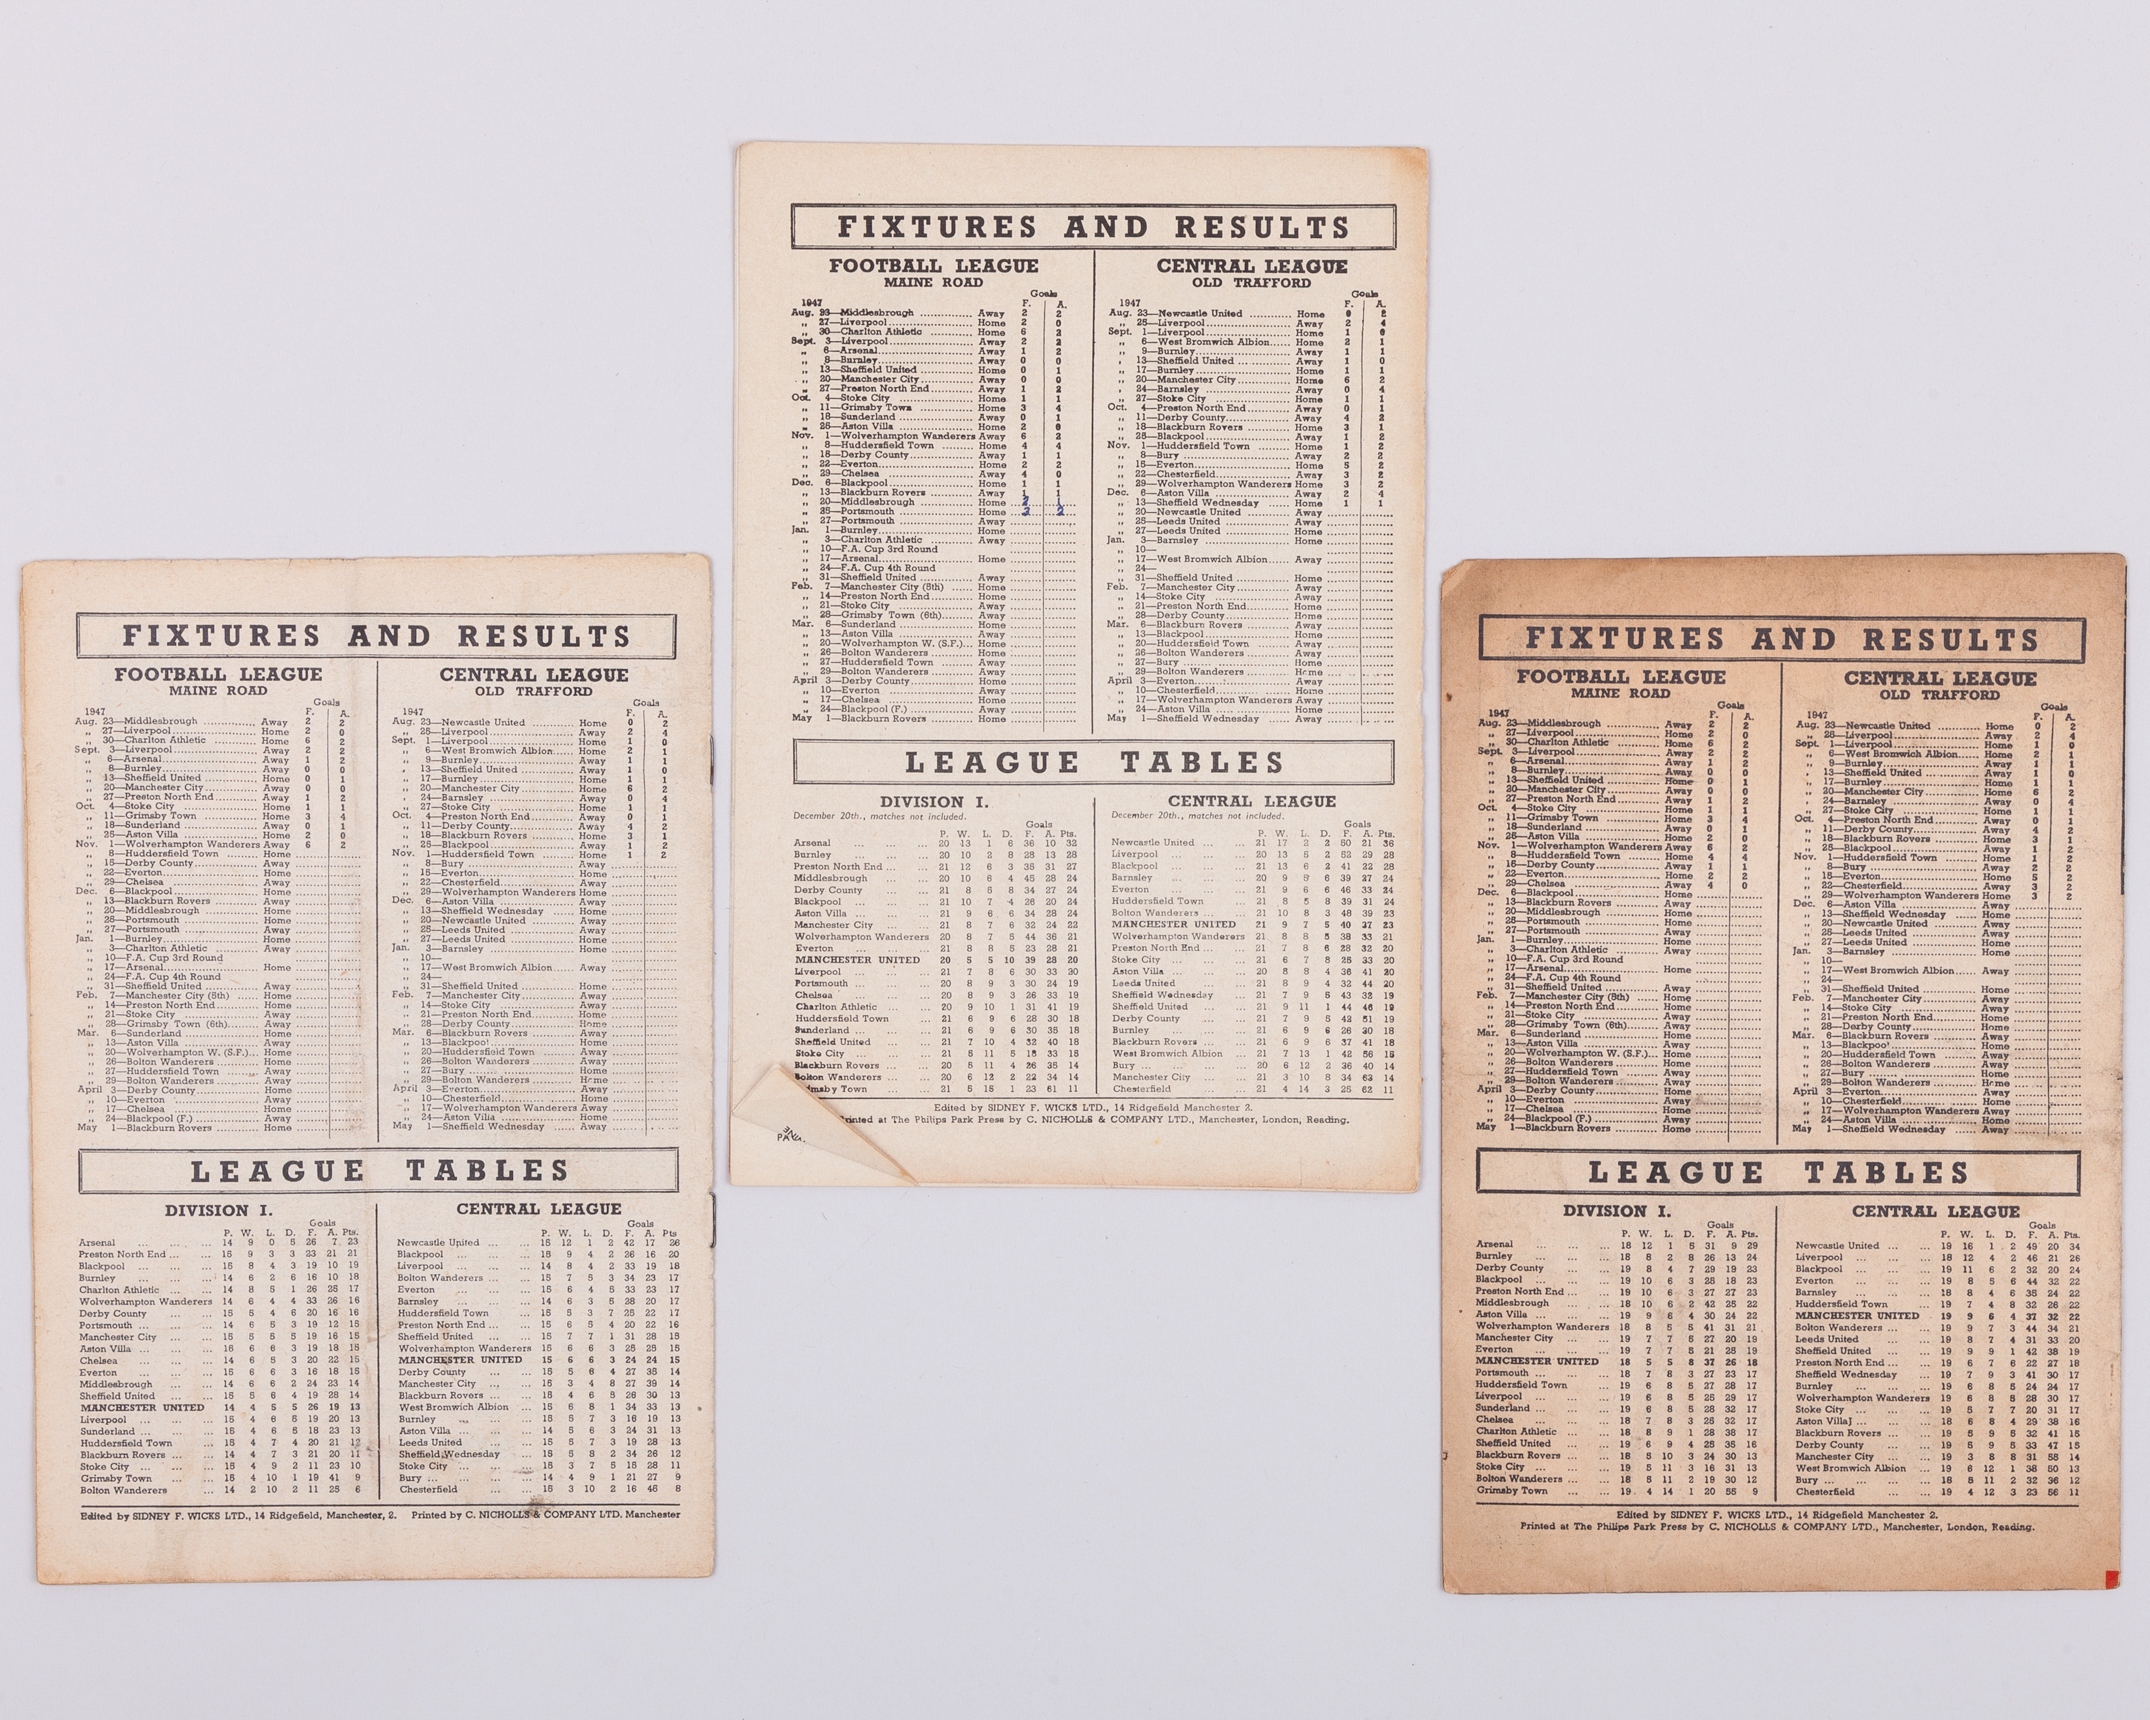 FIXTURES AND RESULTS
FOOTBALL LEAGUE
MAINE ROAD
Goals
1947 F. A.
Aug. 23—Middlesbrough Away 2 2
„ 27—Liverpool Home 2 0
„ 30—Charlton Athletic Home 6 2
Sept. 3—Liverpool Away 2 2
„ 6—Arsenal Away 1 2
„ 8—Burnley Away 0 0
„ 13—Sheffield United Home 0 1
„ 20—Manchester City Away 0 0
„ 27—Preston North End Away 1 2
Oct. 4—Stoke City Home 1 1
„ 11—Grimsby Town Home 3 4
„ 18—Sunderland Away 0 1
„ 25—Aston Villa Home 2 0
Nov. 1—Wolverhampton Wanderers Away 6 2
„ 8—Huddersfield Town Home
„ 15—Derby County Away
„ 22—Everton Home
„ 29—Chelsea Away
Dec. 6—Blackpool Home
„ 13—Blackburn Rovers Away
„ 20—Middlesbrough Home
„ 25—Portsmouth Home
„ 27—Portsmouth Away
Jan. 1—Burnley Home
„ 3—Charlton Athletic Away
„ 10—F.A. Cup 3rd Round
„ 17—Arsenal Home
„ 24—F.A. Cup 4th Round
„ 31—Sheffield United Away
Feb. 7—Manchester City (5th) Home
„ 14—Preston North End Home
„ 21—Stoke City Away
„ 28—Grimsby Town (6th) Away
Mar. 6—Sunderland Home
„ 13—Aston Villa Away
„ 20—Wolverhampton W. (S.F.) Home
„ 26—Bolton Wanderers Home
„ 27—Huddersfield Town Away
„ 29—Bolton Wanderers Away
April 3—Derby County Home
„ 10—Everton Away
„ 17—Chelsea Home
„ 24—Blackpool (F.) Away
May 1—Blackburn Rovers Home
CENTRAL LEAGUE
OLD TRAFFORD
Goals
1947 F. A.
Aug. 23—Newcastle United Home 0 2
„ 25—Liverpool Away 2 4
Sept. 1—Liverpool Home 1 0
„ 6—West Bromwich Albion Home 2 1
„ 9—Burnley Away 1 1
„ 13—Sheffield United Away 1 0
„ 17—Burnley Home 1 1
„ 20—Manchester City Home 6 2
„ 24—Barnsley Away 0 4
„ 27—Stoke City Home 1 1
Oct. 4—Preston North End Away 0 1
„ 11—Derby County Away 4 2
„ 18—Blackburn Rovers Home 3 1
„ 25—Blackpool Away 1 2
Nov. 1—Huddersfield Town Home 1 2
„ 8—Bury Away
„ 15—Everton Home
„ 22—Chesterfield Away
„ 29—Wolverhampton Wanderers Home
Dec. 6—Aston Villa Away
„ 13—Sheffield Wednesday Home
„ 20—Newcastle United Away
„ 25—Leeds United Away
„ 27—Leeds United Home
Jan. 3—Barnsley Home
„ 10—
„ 17—West Bromwich Albion Away
„ 24—
„ 31—Sheffield United Home
Feb. 7—Manchester City Away
„ 14—Stoke City Away
„ 21—Preston North End Home
„ 28—Derby County Home
Mar. 6—Blackburn Rovers Away
„ 13—Blackpool Home
„ 20—Huddersfield Town Away
„ 26—Bolton Wanderers Away
„ 27—Bury Home
„ 29—Bolton Wanderers Home
April 3—Everton Away
„ 10—Chesterfield Home
„ 17—Wolverhampton Wanderers Away
„ 24—Aston Villa Home
May 1—Sheffield Wednesday Away
LEAGUE TABLES
DIVISION I.
Goals
P. W. L. D. F. A. Pts.
Arsenal 14 9 0 5 26 7 23
Preston North End 15 9 3 3 23 21 21
Blackpool 15 8 4 3 19 10 19
Burnley 14 6 2 6 16 10 18
Charlton Athletic 14 8 5 1 26 25 17
Wolverhampton Wanderers 14 6 4 4 33 26 16
Derby County 15 5 4 6 20 16 16
Portsmouth 14 6 5 3 19 12 15
Manchester City 15 5 5 5 19 16 15
Aston Villa 15 6 6 3 19 18 15
Chelsea 14 6 5 3 20 22 15
Everton 15 6 6 3 16 18 15
Middlesbrough 14 6 6 2 24 23 14
Sheffield United 15 5 6 4 19 28 14
MANCHESTER UNITED 14 4 5 5 26 19 13
Liverpool 15 4 6 5 19 20 13
Sunderland 15 4 6 5 18 23 13
Huddersfield Town 15 4 7 4 20 21 12
Blackburn Rovers 14 4 7 3 21 20 11
Stoke City 15 4 9 2 11 23 10
Grimsby Town 15 4 10 1 19 41 9
Bolton Wanderers 14 2 10 2 11 25 6
CENTRAL LEAGUE
Goals
P. W. L. D. F. A. Pts
Newcastle United 15 12 1 2 42 17 26
Blackpool 15 9 4 2 26 16 20
Liverpool 14 8 4 2 33 19 18
Bolton Wanderers 15 7 5 3 34 23 17
Everton 15 6 4 5 33 23 17
Barnsley 14 6 3 5 28 20 17
Huddersfield Town 15 5 3 7 25 22 17
Preston North End 15 6 5 4 20 22 16
Sheffield United 15 7 7 1 31 28 15
Wolverhampton Wanderers 15 6 6 3 25 25 15
MANCHESTER UNITED 15 6 6 3 24 24 15
Derby County 15 5 6 4 27 35 14
Manchester City 15 3 4 8 27 39 14
Blackburn Rovers 15 4 6 5 26 30 13
West Bromwich Albion 15 6 8 1 34 33 13
Burnley 15 5 7 3 16 19 13
Aston Villa 14 5 6 3 24 31 13
Leeds United 15 5 7 3 19 28 13
Sheffield Wednesday 15 5 8 2 34 26 12
Stoke City 15 3 7 5 15 28 11
Bury 14 4 9 1 21 27 9
Chesterfield 15 3 10 2 16 46 8
Edited by SIDNEY F. WICKS LTD., 14 Ridgefield, Manchester, 2. Printed by C. NICHOLLS & COMPANY LTD. Manchester
FIXTURES AND RESULTS
FOOTBALL LEAGUE
MAINE ROAD
Goals
1947 F. A.
Aug. 23—Middlesbrough Away 2 2
„ 27—Liverpool Home 2 0
„ 30—Charlton Athletic Home 6 2
Sept. 3—Liverpool Away 2 2
„ 6—Arsenal Away 1 2
„ 8—Burnley Away 0 0
„ 13—Sheffield United Home 0 1
„ 20—Manchester City Away 0 0
„ 27—Preston North End Away 1 2
Oct. 4—Stoke City Home 1 1
„ 11—Grimsby Town Home 3 4
„ 18—Sunderland Away 0 1
„ 25—Aston Villa Home 2 0
Nov. 1—Wolverhampton Wanderers Away 6 2
„ 8—Huddersfield Town Home 4 4
„ 15—Derby County Away 1 1
„ 22—Everton Home 2 2
„ 29—Chelsea Away 4 0
Dec. 6—Blackpool Home 1 1
„ 13—Blackburn Rovers Away 1 1
„ 20—Middlesbrough Home 2 1
„ 25—Portsmouth Home 3 2
„ 27—Portsmouth Away
Jan. 1—Burnley Home
„ 3—Charlton Athletic Away
„ 10—F.A. Cup 3rd Round
„ 17—Arsenal Home
„ 24—F.A. Cup 4th Round
„ 31—Sheffield United Away
Feb. 7—Manchester City (5th) Home
„ 14—Preston North End Home
„ 21—Stoke City Away
„ 28—Grimsby Town (6th) Away
Mar. 6—Sunderland Home
„ 13—Aston Villa Away
„ 20—Wolverhampton W. (S.F.) Home
„ 26—Bolton Wanderers Home
„ 27—Huddersfield Town Away
„ 29—Bolton Wanderers Away
April 3—Derby County Home
„ 10—Everton Away
„ 17—Chelsea Home
„ 24—Blackpool (F.) Away
May 1—Blackburn Rovers Home
CENTRAL LEAGUE
OLD TRAFFORD
Goals
1947 F. A.
Aug. 23—Newcastle United Home 0 2
„ 25—Liverpool Away 2 4
Sept. 1—Liverpool Home 1 0
„ 6—West Bromwich Albion Home 2 1
„ 9—Burnley Away 1 1
„ 13—Sheffield United Away 1 0
„ 17—Burnley Home 1 1
„ 20—Manchester City Home 6 2
„ 24—Barnsley Away 0 4
„ 27—Stoke City Home 1 1
Oct. 4—Preston North End Away 0 1
„ 11—Derby County Away 4 2
„ 18—Blackburn Rovers Home 3 1
„ 25—Blackpool Away 1 2
Nov. 1—Huddersfield Town Home 1 2
„ 8—Bury Away 2 2
„ 15—Everton Home 5 2
„ 22—Chesterfield Away 3 2
„ 29—Wolverhampton Wanderers Home 3 2
Dec. 6—Aston Villa Away 2 4
„ 13—Sheffield Wednesday Home 1 1
„ 20—Newcastle United Away
„ 25—Leeds United Away
„ 27—Leeds United Home
Jan. 3—Barnsley Home
„ 10—
„ 17—West Bromwich Albion Away
„ 24—
„ 31—Sheffield United Home
Feb. 7—Manchester City Away
„ 14—Stoke City Away
„ 21—Preston North End Home
„ 28—Derby County Home
Mar. 6—Blackburn Rovers Away
„ 13—Blackpool Home
„ 20—Huddersfield Town Away
„ 26—Bolton Wanderers Away
„ 27—Bury Home
„ 29—Bolton Wanderers Home
April 3—Everton Away
„ 10—Chesterfield Home
„ 17—Wolverhampton Wanderers Away
„ 24—Aston Villa Home
May 1—Sheffield Wednesday Away
LEAGUE TABLES
DIVISION I.
December 20th., matches not included.
Goals
P. W. L. D. F. A. Pts.
Arsenal 20 13 1 6 36 10 32
Burnley 20 10 2 8 28 13 28
Preston North End 21 12 6 3 35 31 27
Middlesbrough 20 10 6 4 45 28 24
Derby County 21 8 5 8 34 27 24
Blackpool 21 10 7 4 26 20 24
Aston Villa 21 9 6 6 34 28 24
Manchester City 21 8 7 6 32 24 22
Wolverhampton Wanderers 20 8 7 5 44 36 21
Everton 21 8 8 5 23 28 21
MANCHESTER UNITED 20 5 5 10 39 28 20
Liverpool 21 7 8 6 30 33 20
Portsmouth 20 8 9 3 30 24 19
Chelsea 20 8 9 3 26 33 19
Charlton Athletic 20 9 10 1 31 41 19
Huddersfield Town 21 6 9 6 28 30 18
Sunderland 21 6 9 6 30 35 18
Sheffield United 21 7 10 4 32 40 18
Stoke City 21 5 11 5 18 33 15
Blackburn Rovers 20 5 11 4 26 35 14
Bolton Wanderers 20 6 12 2 22 34 14
Town 21 5 15 1 23 61 11
CENTRAL LEAGUE
December 20th., matches not included.
Goals
P. W. L. D. F. A. Pts.
Newcastle United 21 17 2 2 50 21 36
Liverpool 20 13 5 2 52 29 28
Blackpool 21 13 6 2 41 22 28
Barnsley 20 9 5 6 39 27 24
Everton 21 9 6 6 46 33 24
Huddersfield Town 21 8 5 8 39 31 24
Bolton Wanderers 21 10 8 3 48 39 23
MANCHESTER UNITED 21 9 7 5 40 37 23
Wolverhampton Wanderers 21 8 8 5 38 33 21
Preston North End 21 7 8 6 28 32 20
Stoke City 21 6 7 8 25 33 20
Aston Villa 20 8 8 4 36 41 20
Leeds United 21 8 9 4 32 44 20
Sheffield Wednesday 21 7 9 5 43 32 19
Sheffield United 21 9 11 1 44 46 19
Derby County 21 7 9 5 42 51 19
Burnley 21 6 9 6 26 30 18
Blackburn Rovers 21 6 9 6 37 41 18
West Bromwich Albion 21 7 13 1 42 56 15
Bury 20 6 12 2 36 40 14
Manchester City 21 3 10 8 34 63 14
Chesterfield 21 4 14 3 25 62 11
Edited by SIDNEY F. WICKS LTD., 14 Ridgefield Manchester 2.
at The Philips Park Press by C. NICHOLLS & COMPANY LTD., Manchester, London, Reading.
FIXTURES AND RESULTS
FOOTBALL LEAGUE
MAINE ROAD
Goals
1947 F. A.
Aug. 23—Middlesbrough Away 2 2
„ 27—Liverpool Home 2 0
„ 30—Charlton Athletic Home 6 2
Sept. 3—Liverpool Away 2 2
„ 6—Arsenal Away 1 2
„ 8—Burnley Away 0 0
„ 13—Sheffield United Home 0 1
„ 20—Manchester City Away 0 0
„ 27—Preston North End Away 1 2
Oct. 4—Stoke City Home 1 1
„ 11—Grimsby Town Home 3 4
„ 18—Sunderland Away 0 1
„ 25—Aston Villa Home 2 0
Nov. 1—Wolverhampton Wanderers Away 6 2
„ 8—Huddersfield Town Home 4 4
„ 15—Derby County Away 1 1
„ 22—Everton Home 2 2
„ 29—Chelsea Away 4 0
Dec. 6—Blackpool Home
„ 13—Blackburn Rovers Away
„ 20—Middlesbrough Home
„ 25—Portsmouth Home
„ 27—Portsmouth Away
Jan. 1—Burnley Home
„ 3—Charlton Athletic Away
„ 10—F.A. Cup 3rd Round
„ 17—Arsenal Home
„ 24—F.A. Cup 4th Round
„ 31—Sheffield United Away
Feb. 7—Manchester City (5th) Home
„ 14—Preston North End Home
„ 21—Stoke City Away
„ 28—Grimsby Town (6th) Away
Mar. 6—Sunderland Home
„ 13—Aston Villa Away
„ 20—Wolverhampton W. (S.F.) Home
„ 26—Bolton Wanderers Home
„ 27—Huddersfield Town Away
„ 29—Bolton Wanderers Away
April 3—Derby County Home
„ 10—Everton Away
„ 17—Chelsea Home
„ 24—Blackpool (F.) Away
May 1—Blackburn Rovers Home
CENTRAL LEAGUE
OLD TRAFFORD
Goals
1947 F. A.
Aug. 23—Newcastle United Home 0 2
„ 25—Liverpool Away 2 4
Sept. 1—Liverpool Home 1 0
„ 6—West Bromwich Albion Home 2 1
„ 9—Burnley Away 1 1
„ 13—Sheffield United Away 1 0
„ 17—Burnley Home 1 1
„ 20—Manchester City Home 6 2
„ 24—Barnsley Away 0 4
„ 27—Stoke City Home 1 1
Oct. 4—Preston North End Away 0 1
„ 11—Derby County Away 4 2
„ 18—Blackburn Rovers Home 3 1
„ 25—Blackpool Away 1 2
Nov. 1—Huddersfield Town Home 1 2
„ 8—Bury Away 2 2
„ 15—Everton Home 5 2
„ 22—Chesterfield Away 3 2
„ 29—Wolverhampton Wanderers Home 3 2
Dec. 6—Aston Villa Away
„ 13—Sheffield Wednesday Home
„ 20—Newcastle United Away
„ 25—Leeds United Away
„ 27—Leeds United Home
Jan. 3—Barnsley Home
„ 10—
„ 17—West Bromwich Albion Away
„ 24—
„ 31—Sheffield United Home
Feb. 7—Manchester City Away
„ 14—Stoke City Away
„ 21—Preston North End Home
„ 28—Derby County Home
Mar. 6—Blackburn Rovers Away
„ 13—Blackpoo' Home
„ 20—Huddersfield Town Away
„ 26—Bolton Wanderers Away
„ 27—Bury Home
„ 29—Bolton Wanderers Home
April 3—Everton Away
„ 10—Chesterfield Home
„ 17—Wolverhampton Wanderers Away
„ 24—Aston Villa Home
May 1—Sheffield Wednesday Away
LEAGUE TABLES
DIVISION I.
Goals
P. W. L. D. F. A. Pts.
Arsenal 18 12 1 5 31 9 29
Burnley 18 8 2 8 26 13 24
Derby County 19 8 4 7 29 19 23
Blackpool 19 10 6 3 25 18 23
Preston North End 19 10 6 3 27 27 23
Middlesbrough 18 10 6 2 42 25 22
Aston Villa 19 9 6 4 30 24 22
Wolverhampton Wanderers 18 8 5 5 41 31 21
Manchester City 19 7 7 5 27 20 19
Everton 19 7 7 5 21 25 19
MANCHESTER UNITED 18 5 5 8 37 26 18
Portsmouth 18 7 8 3 27 23 17
Huddersfield Town 19 6 8 5 27 28 17
Liverpool 19 6 8 5 25 29 17
Sunderland 19 6 8 5 28 32 17
Chelsea 18 7 8 3 25 32 17
Charlton Athletic 18 8 9 1 28 38 17
Sheffield United 19 6 9 4 25 35 16
Blackburn Rovers 18 5 10 3 24 30 13
Stoke City 19 5 11 3 16 31 13
Bolton Wanderers 18 5 11 2 19 30 12
Grimsby Town 19 4 14 1 20 55 9
CENTRAL LEAGUE
Goals
P. W. L. D. F. A. Pts.
Newcastle United 19 16 1 2 49 20 34
Liverpool 18 12 4 2 46 21 26
Blackpool 19 11 6 2 32 20 24
Everton 19 8 5 6 44 32 22
Barnsley 18 8 4 6 35 24 22
Huddersfield Town 19 7 4 8 32 26 22
MANCHESTER UNITED 19 9 6 4 37 32 22
Bolton Wanderers 19 9 7 3 44 34 21
Leeds United 19 8 7 4 31 33 20
Sheffield United 19 9 9 1 42 38 19
Preston North End 19 6 7 6 22 27 18
Sheffield Wednesday 19 7 9 3 41 30 17
Burnley 19 6 8 5 24 24 17
Wolverhampton Wanderers 19 6 8 5 28 30 17
Stoke City 19 5 7 7 20 31 17
Aston Villa] 18 6 8 4 29 38 16
Blackburn Rovers 19 5 9 5 32 41 15
Derby County 19 5 9 5 33 47 15
Manchester City 19 3 8 8 31 55 14
West Bromwich Albion 19 6 12 1 38 50 13
Bury 18 5 11 2 32 36 12
Chesterfield 19 4 12 3 23 56 11
Edited by SIDNEY F. WICKS LTD., 14 Ridgefield Manchester 2.
Printed at The Philips Park Press by C. NICHOLLS & COMPANY LTD., Manchester, London, Reading.